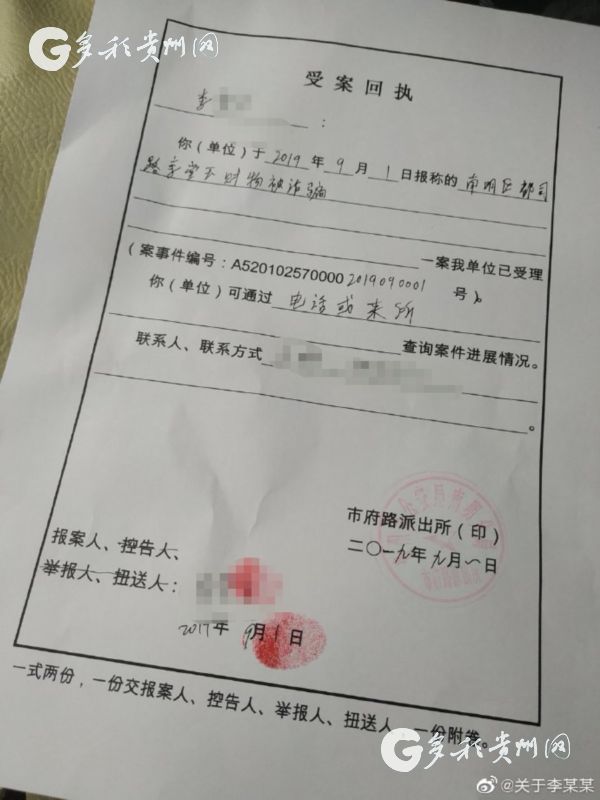 多彩贵州网
受案回执
李 :
你（单位）于 2019 年 9 月 1 日报称的 南明区都司
路 财物被诈骗
一案我单位已受理
（案事件编号：A5201025700002019090001 号）。
你（单位）可通过 电话或来所
查询案件进展情况。
联系人、联系方式 。
市府路派出所（印）
二〇一九年九月一日
报案人、控告人、
举报人、扭送人：
2019年 9月1日
一式两份，一份交报案人、控告人、举报人、扭送人，一份附卷。
多彩贵州网
@关于李某某